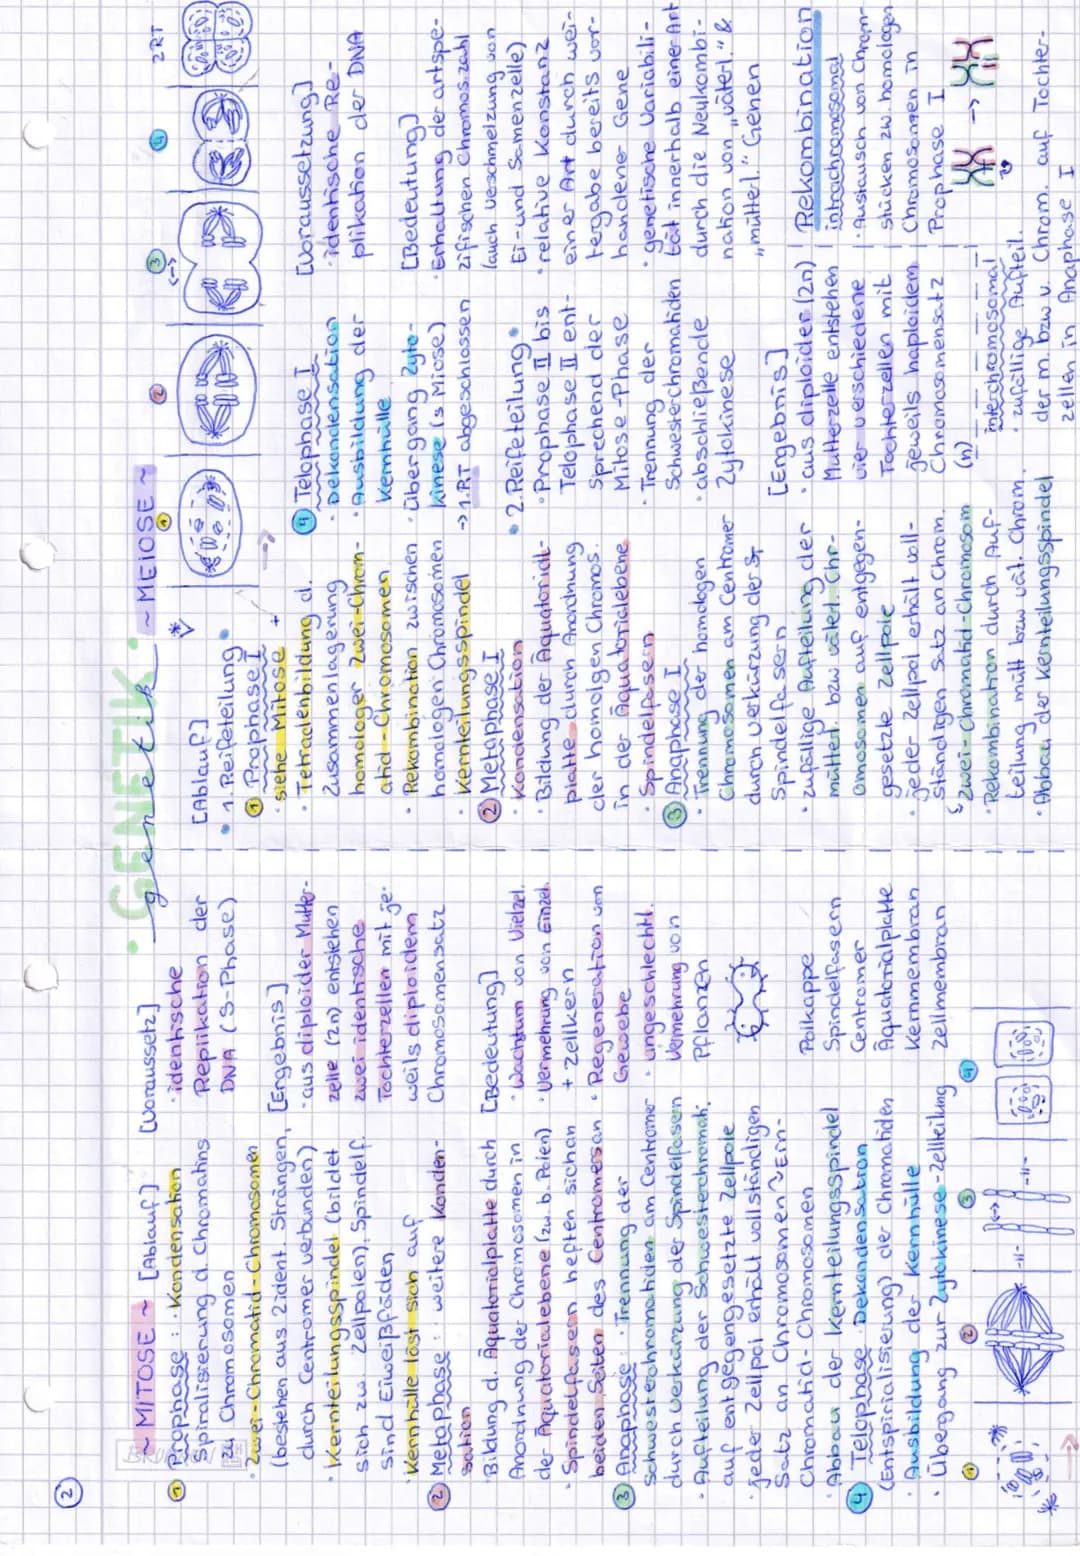 2
• GENETIK •
genetik
~ MITOSE ~ [Ablauf]
1 Prophase: · Kondensation
Spiralisierung d. Chromatins
zu Chromosomen
· Zwei-Chromatid-Chromosomen
(bestehen aus 2 ident. Strängen,
durch Centromer verbunden)
· Kernteilungsspindel (bildet
sich zw. Zellpolen); Spindelf.
sind Eiweißfäden
· Kernhülle löst sich auf
2 Metaphase: · weitere Konden-
sation
· Bildung d. Äquatorialplatte durch
Anordnung der Chromosomen in
der Äquatorialebene (zw. b. Polen)
· Spindelfasern heften sich an
beiden Seiten des Centromers an
3 Anaphase: · Trennung der
Schwesterchromatiden am Centromer
durch Verkürzung der Spindelfasern
· Aufteilung der Schwesterchromati.
auf entgegengesetzte Zellpole
· jeder Zellpol erhält vollständigen
Satz an Chromosomen ~ Ein-
Chromatid-Chromosomen
· Abbau der Kernteilungsspindel
4 Telophase · Dekondensation
(Entspiralisierung) der Chromatiden
· Ausbildung der Kernhülle
· Übergang zur Zytokinese - Zellteilung
1 2 3 4
-11- -11-
[Voraussetz]
· identische
Replikation der
DNA (S-Phase)
[Ergebnis]
· aus diploider Mutter-
zelle (2n) entstehen
zwei identische
Tochterzellen mit je-
weils diploidem
Chromosomensatz
[Bedeutung]
· Wachstum von Vielzel.
· Vermehrung von Einzel.
+ Zellkern
· Regeneration von
Gewebe
· ungeschlechtl.
Vermehrung von
Pflanzen
Polkappe
Spindelfasern
Centromer
Äquatorialplatte
Kernmembran
Zellmembran
~ MEIOSE ~
1 2 3 4 2RT
[Ablauf]
• 1. Reifeteilung •
1 Prophase I
· siehe Mitose +
· Tetradenbildung d.
Zusammenlagerung
homologer Zwei-Chrom-
atid-Chromosomen
· Rekombination zwischen
homologen Chromosomen
· Kernteilungsspindel
2 Metaphase I
· Kondensation
· Bildung der Äquatorial-
platte durch Anordnung
der homolgen Chromos.
in der Äquatorialebene
· Spindelfasern
3 Anaphase I
· Trennung der homologen
Chromosomen am Centromer
durch Verkürzung der
Spindelfasern
· zufällige Aufteilung der
mütterl. bzw väterl. Chr-
omosomen auf entgegen-
gesetzte Zellpole
· jeder Zellpol erhält voll-
ständigen Satz an Chrom.
Zwei-Chromatid-Chromosom
· Rekombination durch Auf-
teilung mütt bzw vät. Chrom.
· Abbau der Kernteilungsspindel
4 Telophase I
· Dekondensation
· Ausbildung der
Kernhülle
· Übergang Zyto-
kinese (s Miose)
-> 1.RT abgeschlossen
• 2. Reifeteilung •
· Prophase II bis
Telophase II ent-
sprechend der
Mitose-Phase
· Trennung der
Schwesterchromatiden
· abschließende
Zytokinese
[Ergebnis]
· aus diploider (2n)
Mutterzelle entstehen
vier verschiedene
Tochterzellen mit
jeweils haploidem
Chromosomensatz
(n)
[Voraussetzung]
· identische Re-
plikation der DNA
[Bedeutung]
· Erhaltung der artspe-
zifischen Chromos.zahl
(auch Veschmelzung von
Ei- und Samenzelle)
· relative Konstanz
einer Art durch Wei-
tergabe bereits vor-
handener Gene
· genetische Variabili-
tät innerhalb einer Art
durch die Neukombi-
nation von „väterl." &
„mütterl." Genen
Rekombination
intrachromosomal
· Austausch von Chrom-
stücken zw. homologen
Chromosomen in
Prophase I
->
interchromosomal
· zufällige Aufteil.
der m. bzw v. Chrom. auf Tochter-
zellen in Anaphase I